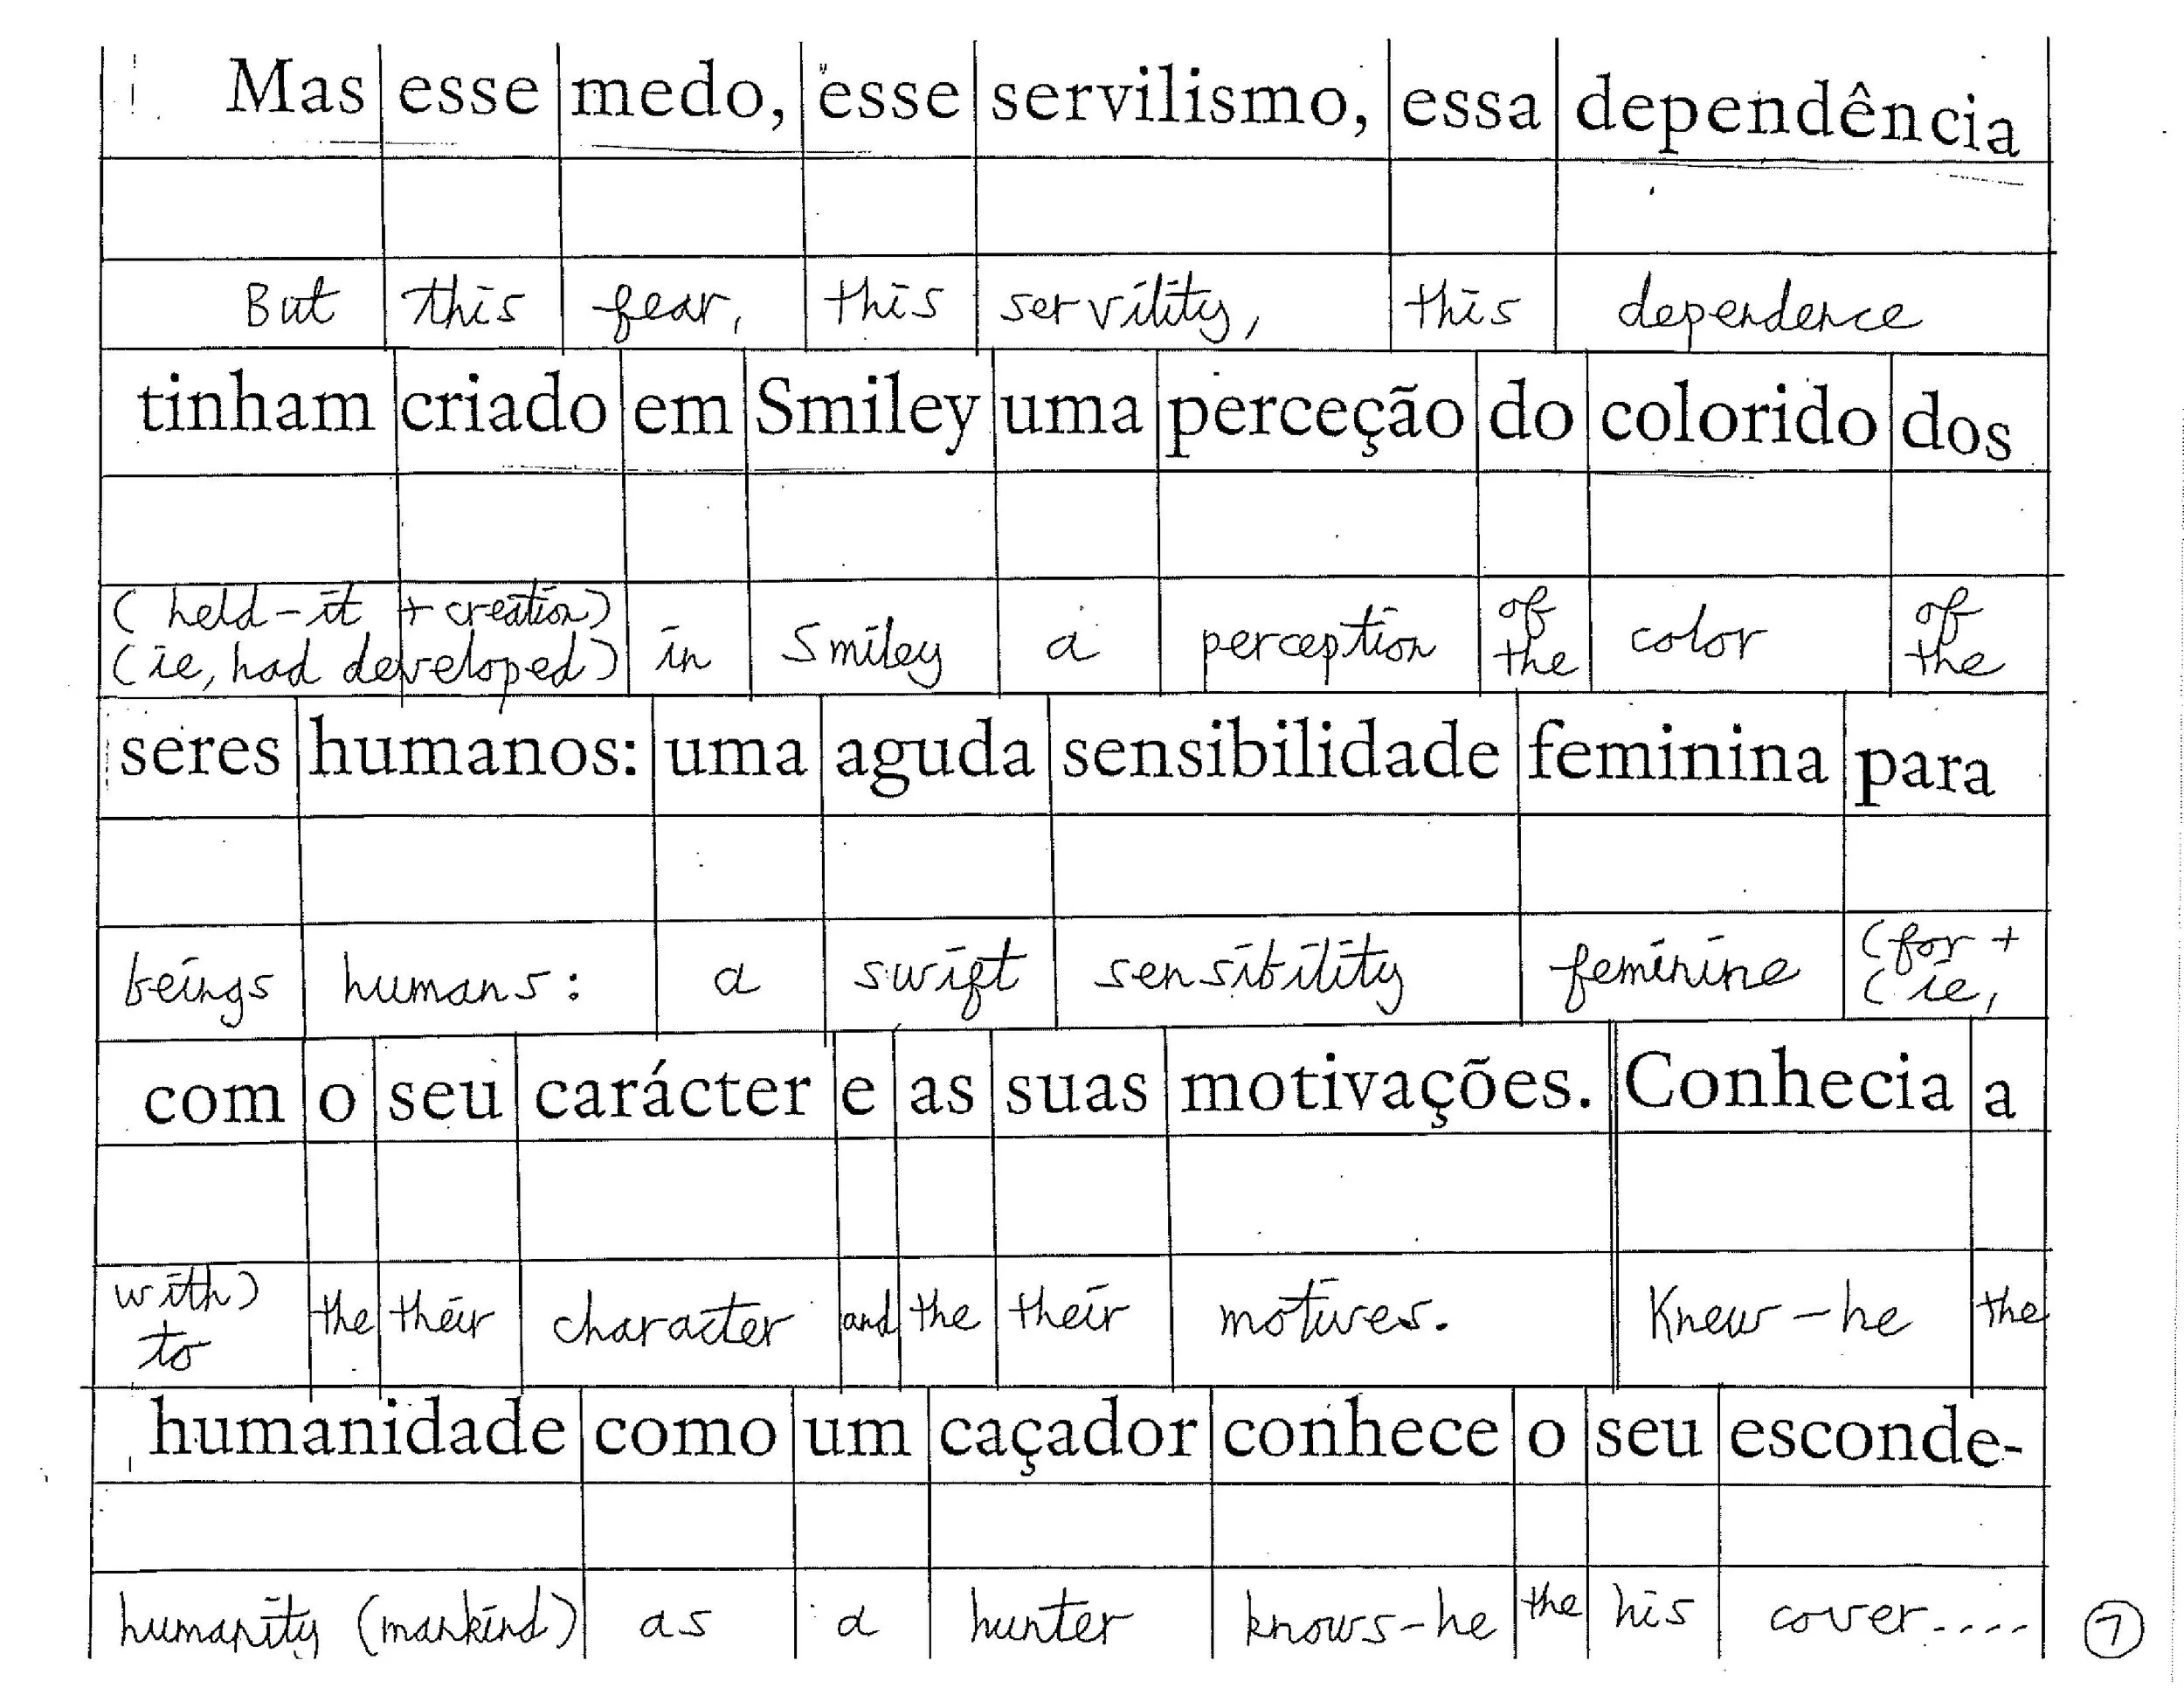 Mas esse medo, esse servilismo, essa dependência
But this fear, this servility, this dependence
tinham criado em Smiley uma perceção do colorido dos
(held-it + creation) in Smiley a perception of the color of the
(ie, had developed)
seres humanos: uma aguda sensibilidade feminina para
beings humans: a swift sensibility feminine (for +
(ie,
com o seu carácter e as suas motivações. Conhecia a
with) the their character and the their motives. Knew-he the
to
humanidade como um caçador conhece o seu esconde-
humanity (mankind) as a hunter knows-he the his cover....
7